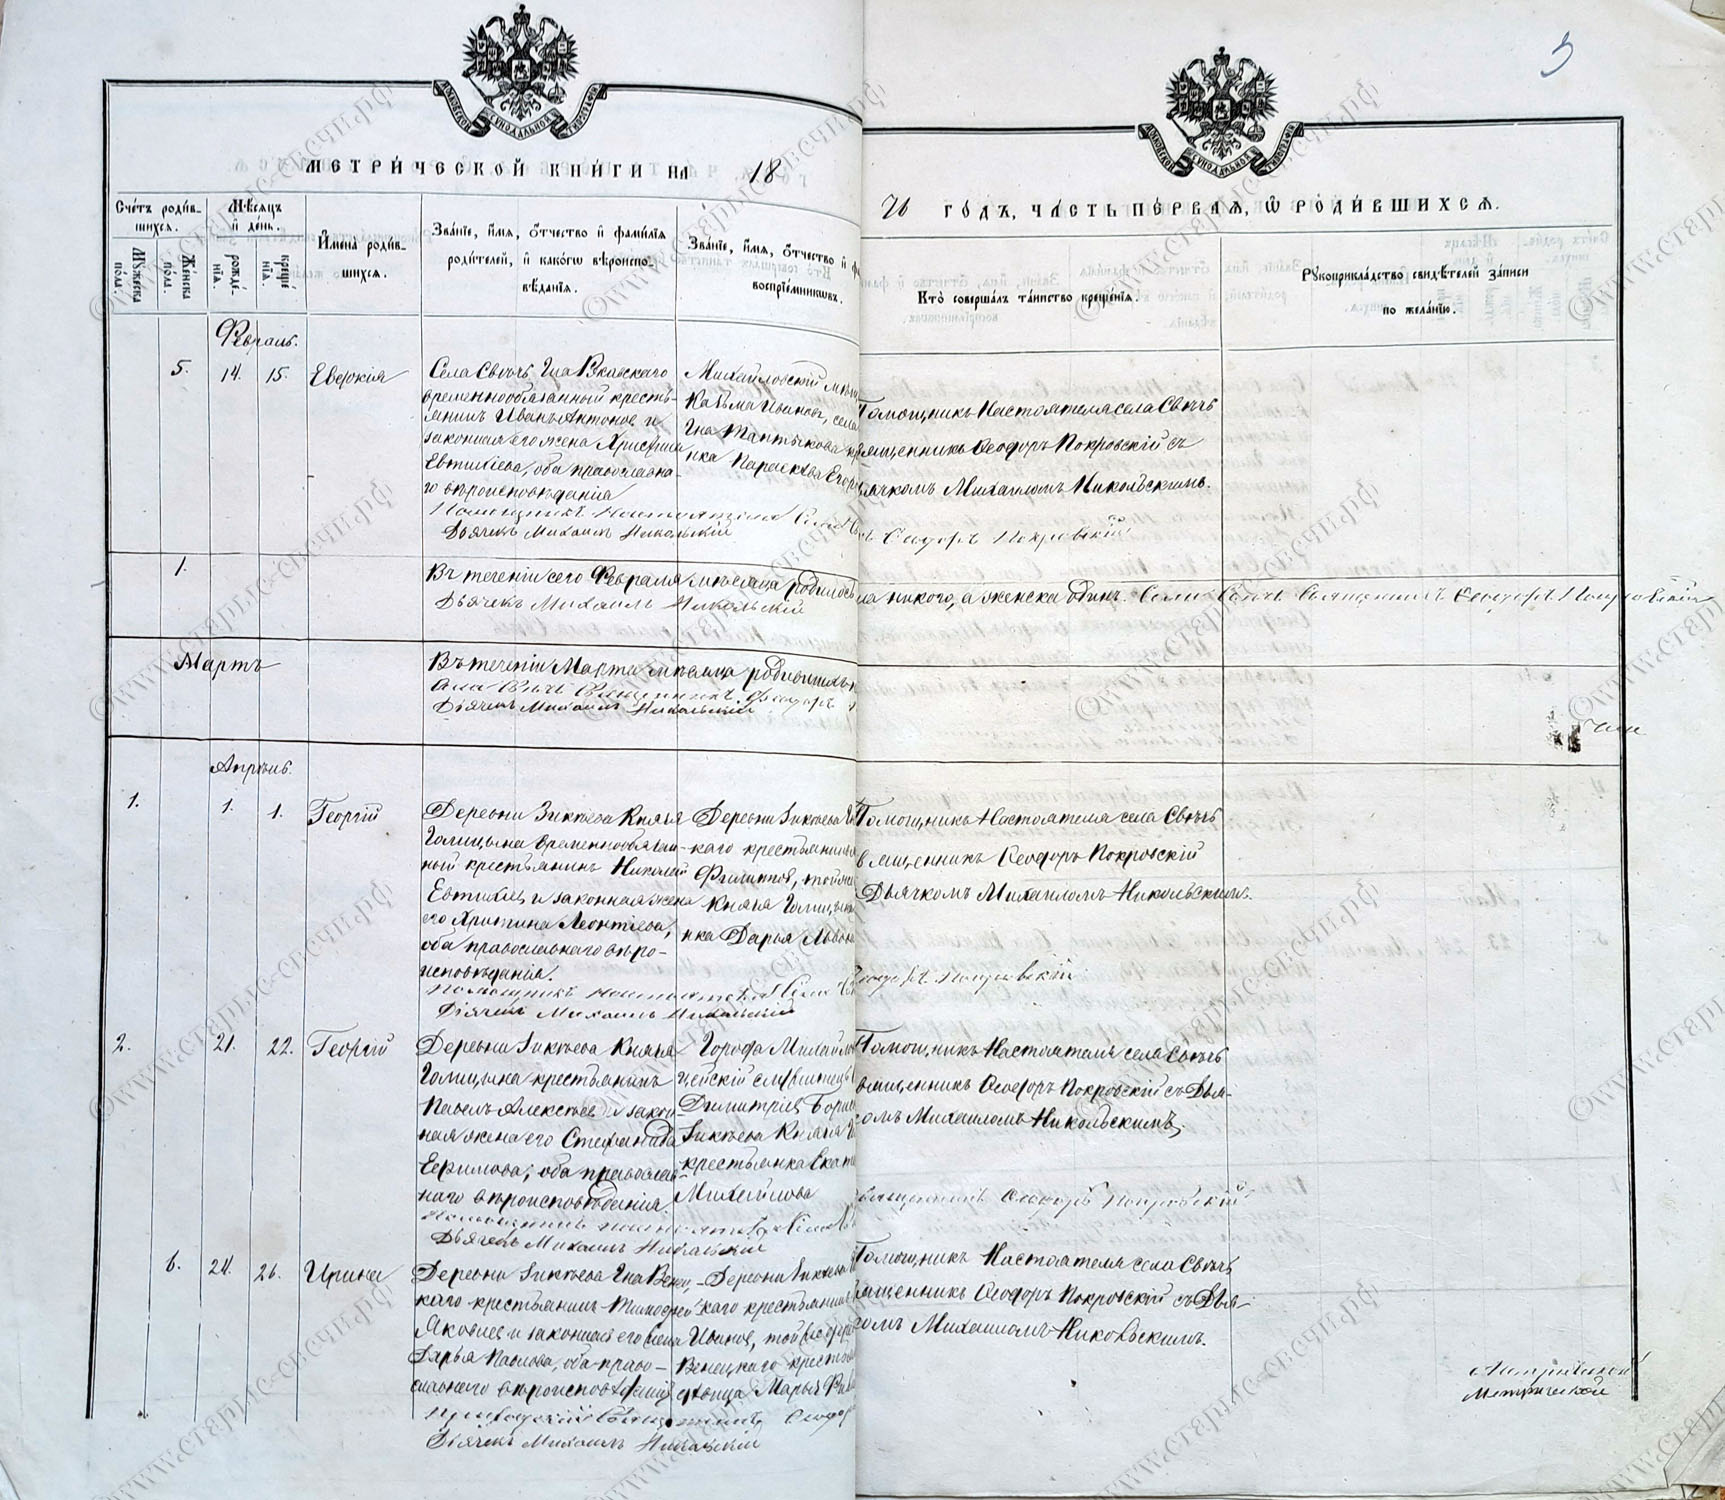 МЕТРИЧЕСКОЙ КНИГИ НА 18
76 ГОДЪ, ЧАСТЬ ПЕРВАЯ, Ѿ РОДИВШИХСЯ.
3
Счетъ родив-
шихся.
Мѣсяцъ
и день.
Мужеска
пола.
Женска
пола.
рожде-
нїя
креще-
нїя.
Имена родив-
шихся.
Званїе, имя, отчество и фамилїя
родителей, и какогω вѣроиспо-
вѣданїя.
Званїе, имя, отчество и фа
воспрїемниковъ.
Кто совершалъ таинство крещенїя.
Рукоприкладство свидѣтелей записи
по желанїю.
Февраль.
5. 14. 15. Евдокія
Села Свѣчъ Гна
временнообязанный кресть-
янинъ Иванъ Антоновъ и
законная его жена
Евтихіева, оба православна-
го вѣроисповѣданія
Помощникъ Настоятеля Села
Дьячекъ Михаилъ Никольскій
Михайловскій мѣщ
Козьма Ивановъ, села
Гна
нка Параскева Егоро
Помощникъ Настоятеля села Свѣчъ
ященникъ Ѳеодоръ Покровскій съ
ьячкомъ Михаиломъ Никольскимъ.
Ѳеодоръ Покровскій
1.
Въ теченіи сего Февраля мѣсяца родилось
на никого, а женска одинъ. Села Свѣчъ Священникъ Ѳеодоръ Покровскій
Дьячекъ Михаилъ Никольскій
Мартъ
Въ теченіи Марта мѣсяца родившихъ
Села Свѣчъ Священникъ Ѳеодоръ
Дьячекъ Михаилъ Никольскій
Апрѣль.
1. 1. 1. Георгій
Деревни Зикѣева Князя
Голицына временнообязан-
ный крестьянинъ Николай
Евтихіевъ и законная жена
его Христина Леонтіева,
оба православнаго вѣро-
исповѣданія.
Помощникъ Настоятеля Села
Дьячекъ Михаилъ Никольскій
Деревни Зикѣева
каго крестьянинъ
Филиппов, той же
Князя Голицына
нка Дарья Львова
Помощникъ Настоятеля села Свѣчъ
вященникъ Ѳеодоръ Покровскій
Дьячкомъ Михаиломъ Никольскимъ.
Ѳеодоръ Покровскій
2. 21. 22. Георгій
Деревни Зикѣева Князя
Голицына крестьянинъ
Павелъ Алексѣев и закон
ная жена его Стефанида
Ефимова, оба православ-
наго вѣроисповѣданія.
Помощникъ Настоятеля Села
Дьячекъ Михаилъ Никольскій
Города Михайло
цейскій служитель
Димитрій
Зикѣева Князя
крестьянка Екате
Михайлова
Помощникъ Настоятель села Свѣчъ
вященникъ Ѳеодоръ Покровскій съ Дья-
комъ Михаиломъ Никольскимъ.
вященникъ Ѳеодоръ Покровскій
6. 24. 26. Ирина
Деревни Зикѣева Гна Венец-
каго крестьянинъ Тимофей
Яковлев и законная его жена
Дарья Павлова, оба право-
славнаго вѣроисповѣданія
Приходскій Священникъ Ѳеодор
Дьячекъ Михаилъ Никольскій
Деревни Зикѣева
каго крестьянинъ
Иванов, той же дере
Венецкаго крестья
дѣвица Марья
Помощникъ Настоятеля села Свѣчъ
ященникъ Ѳеодоръ Покровскій съ Дья-
комъ Михаиломъ Никольскимъ.
Метрической
©www.старыс-свсчи.рф